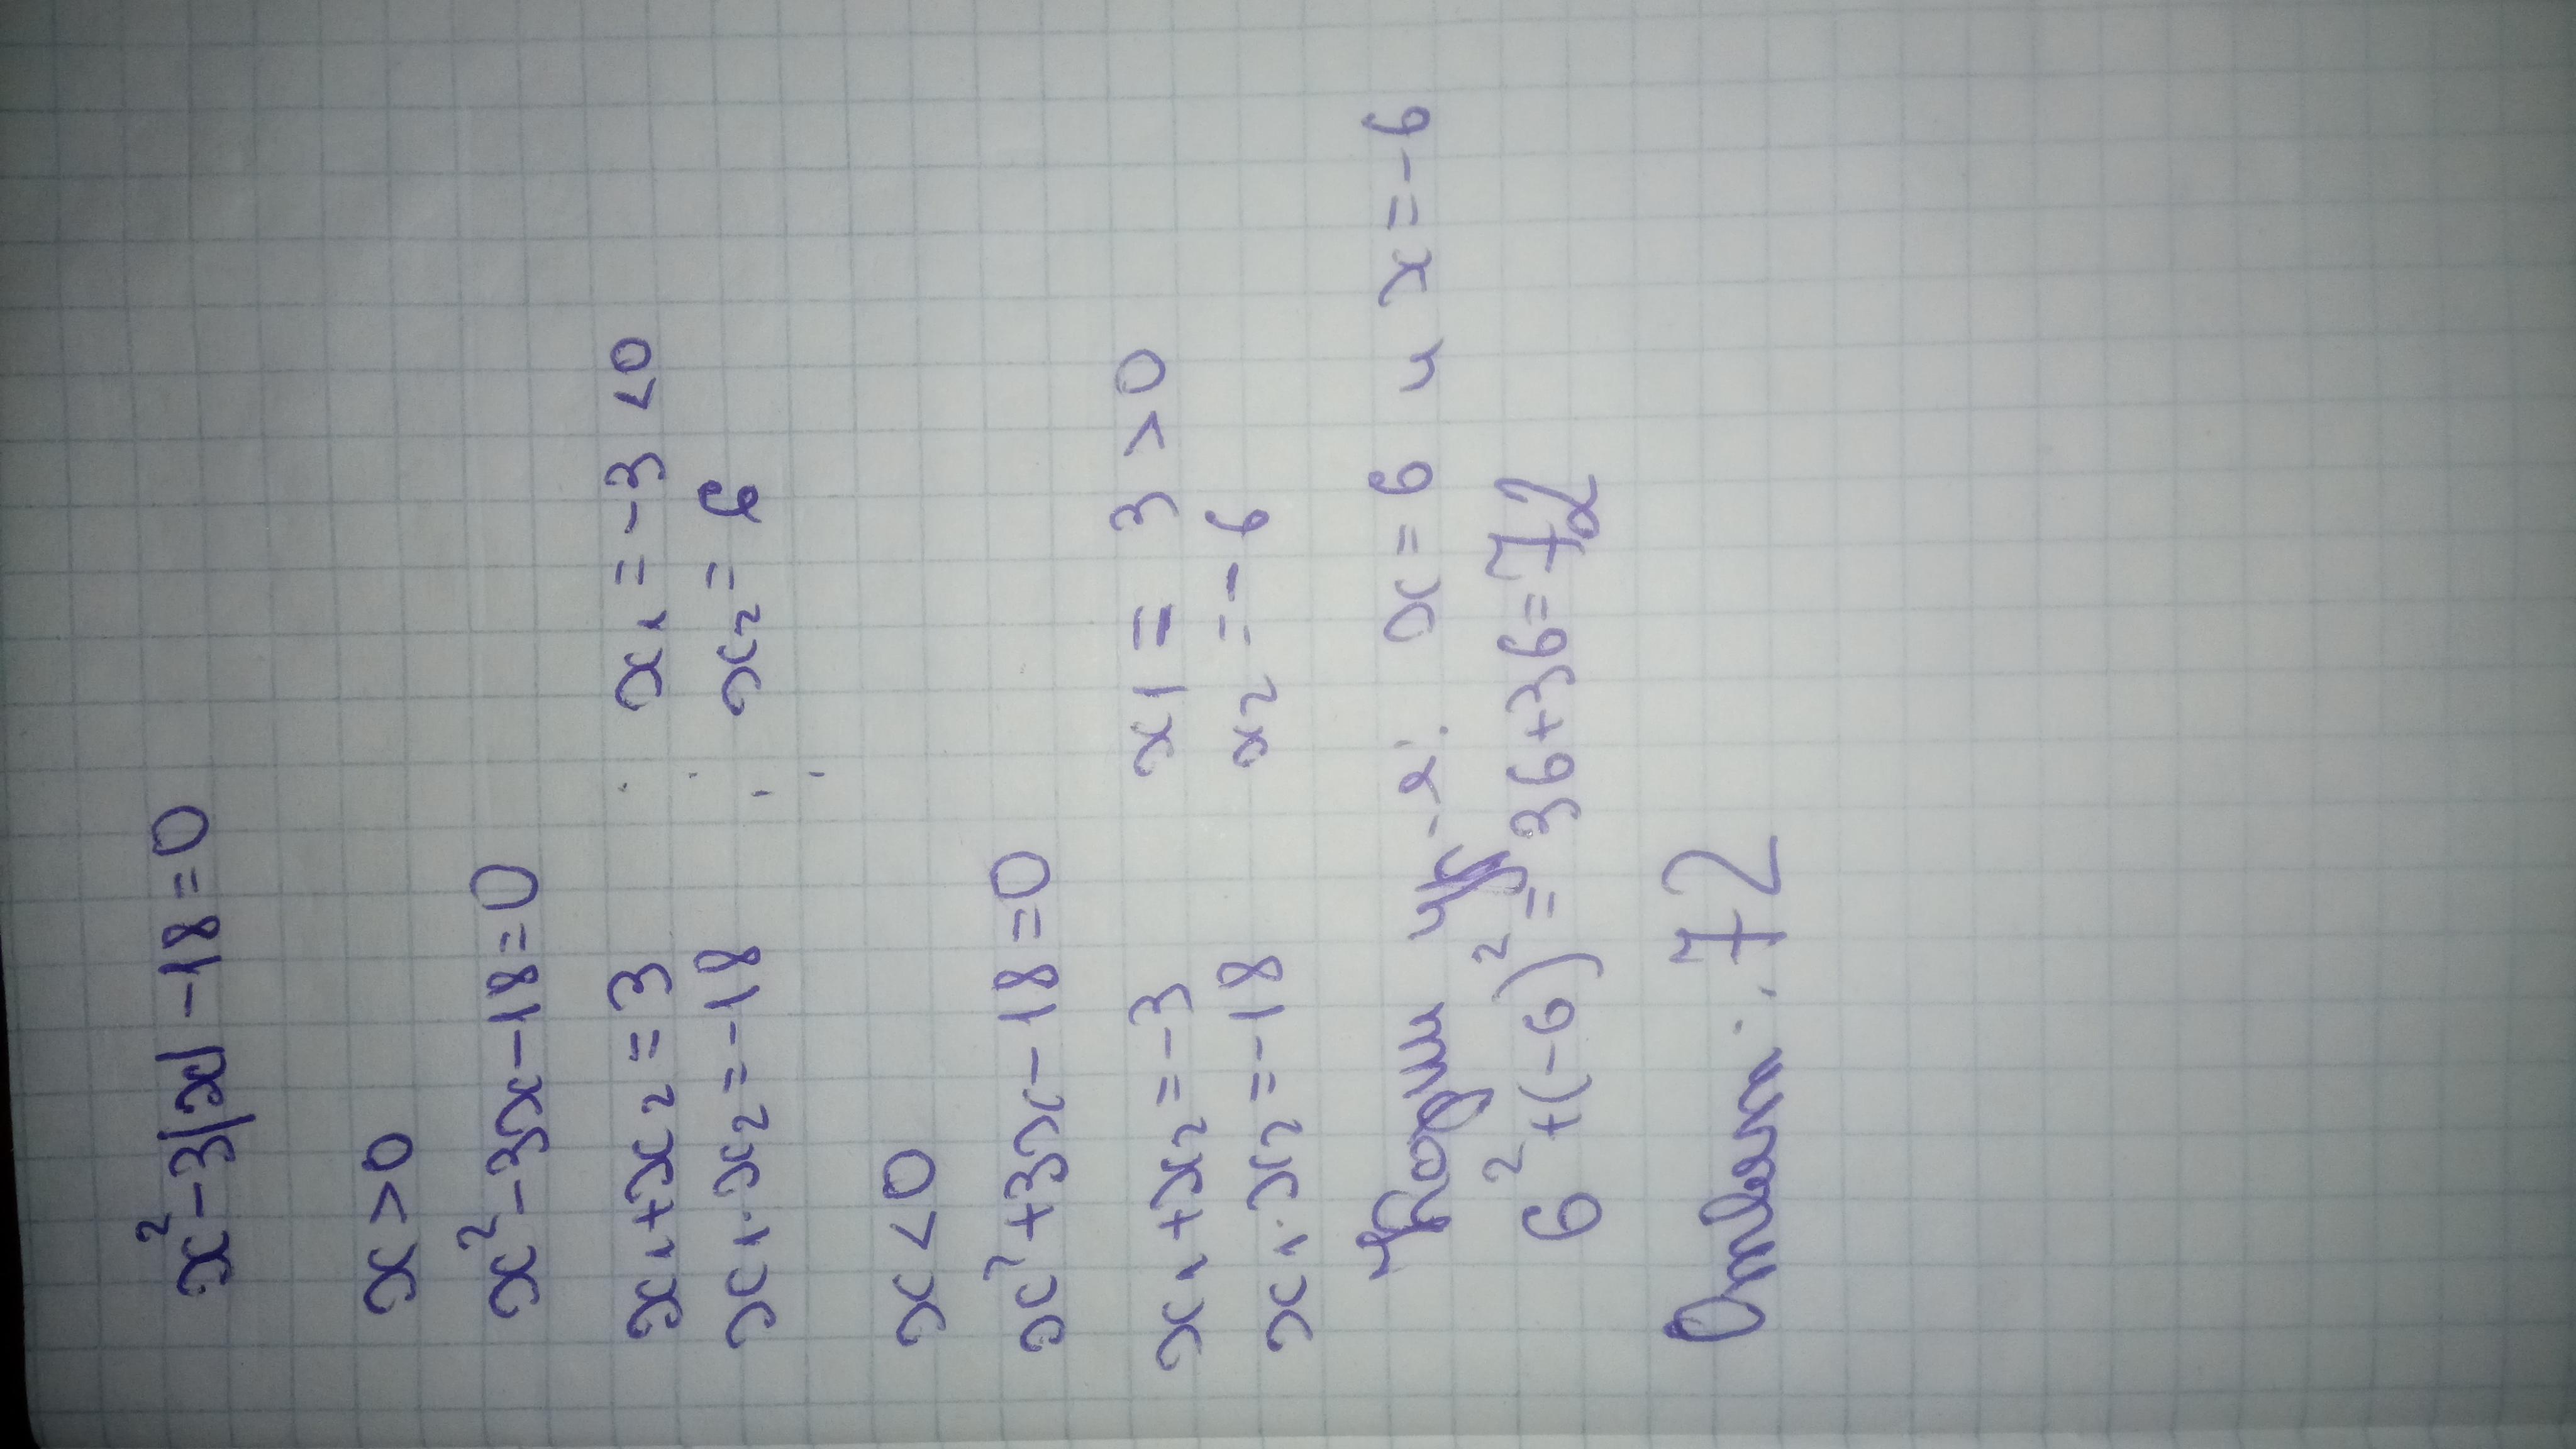 x²-3|x|-18=0
x>0
x²-3x-18=0
x₁+x₂=3 x₁=-3<0
x₁·x₂=-18 x₂=6
x<0
x²+3x-18=0
x₁+x₂=-3 x1=3>0
x₁·x₂=-18 x₂=-6
Корни ур-я: x=6 и x=-6
6²+(-6)²=36+36=72
Ответ: 72